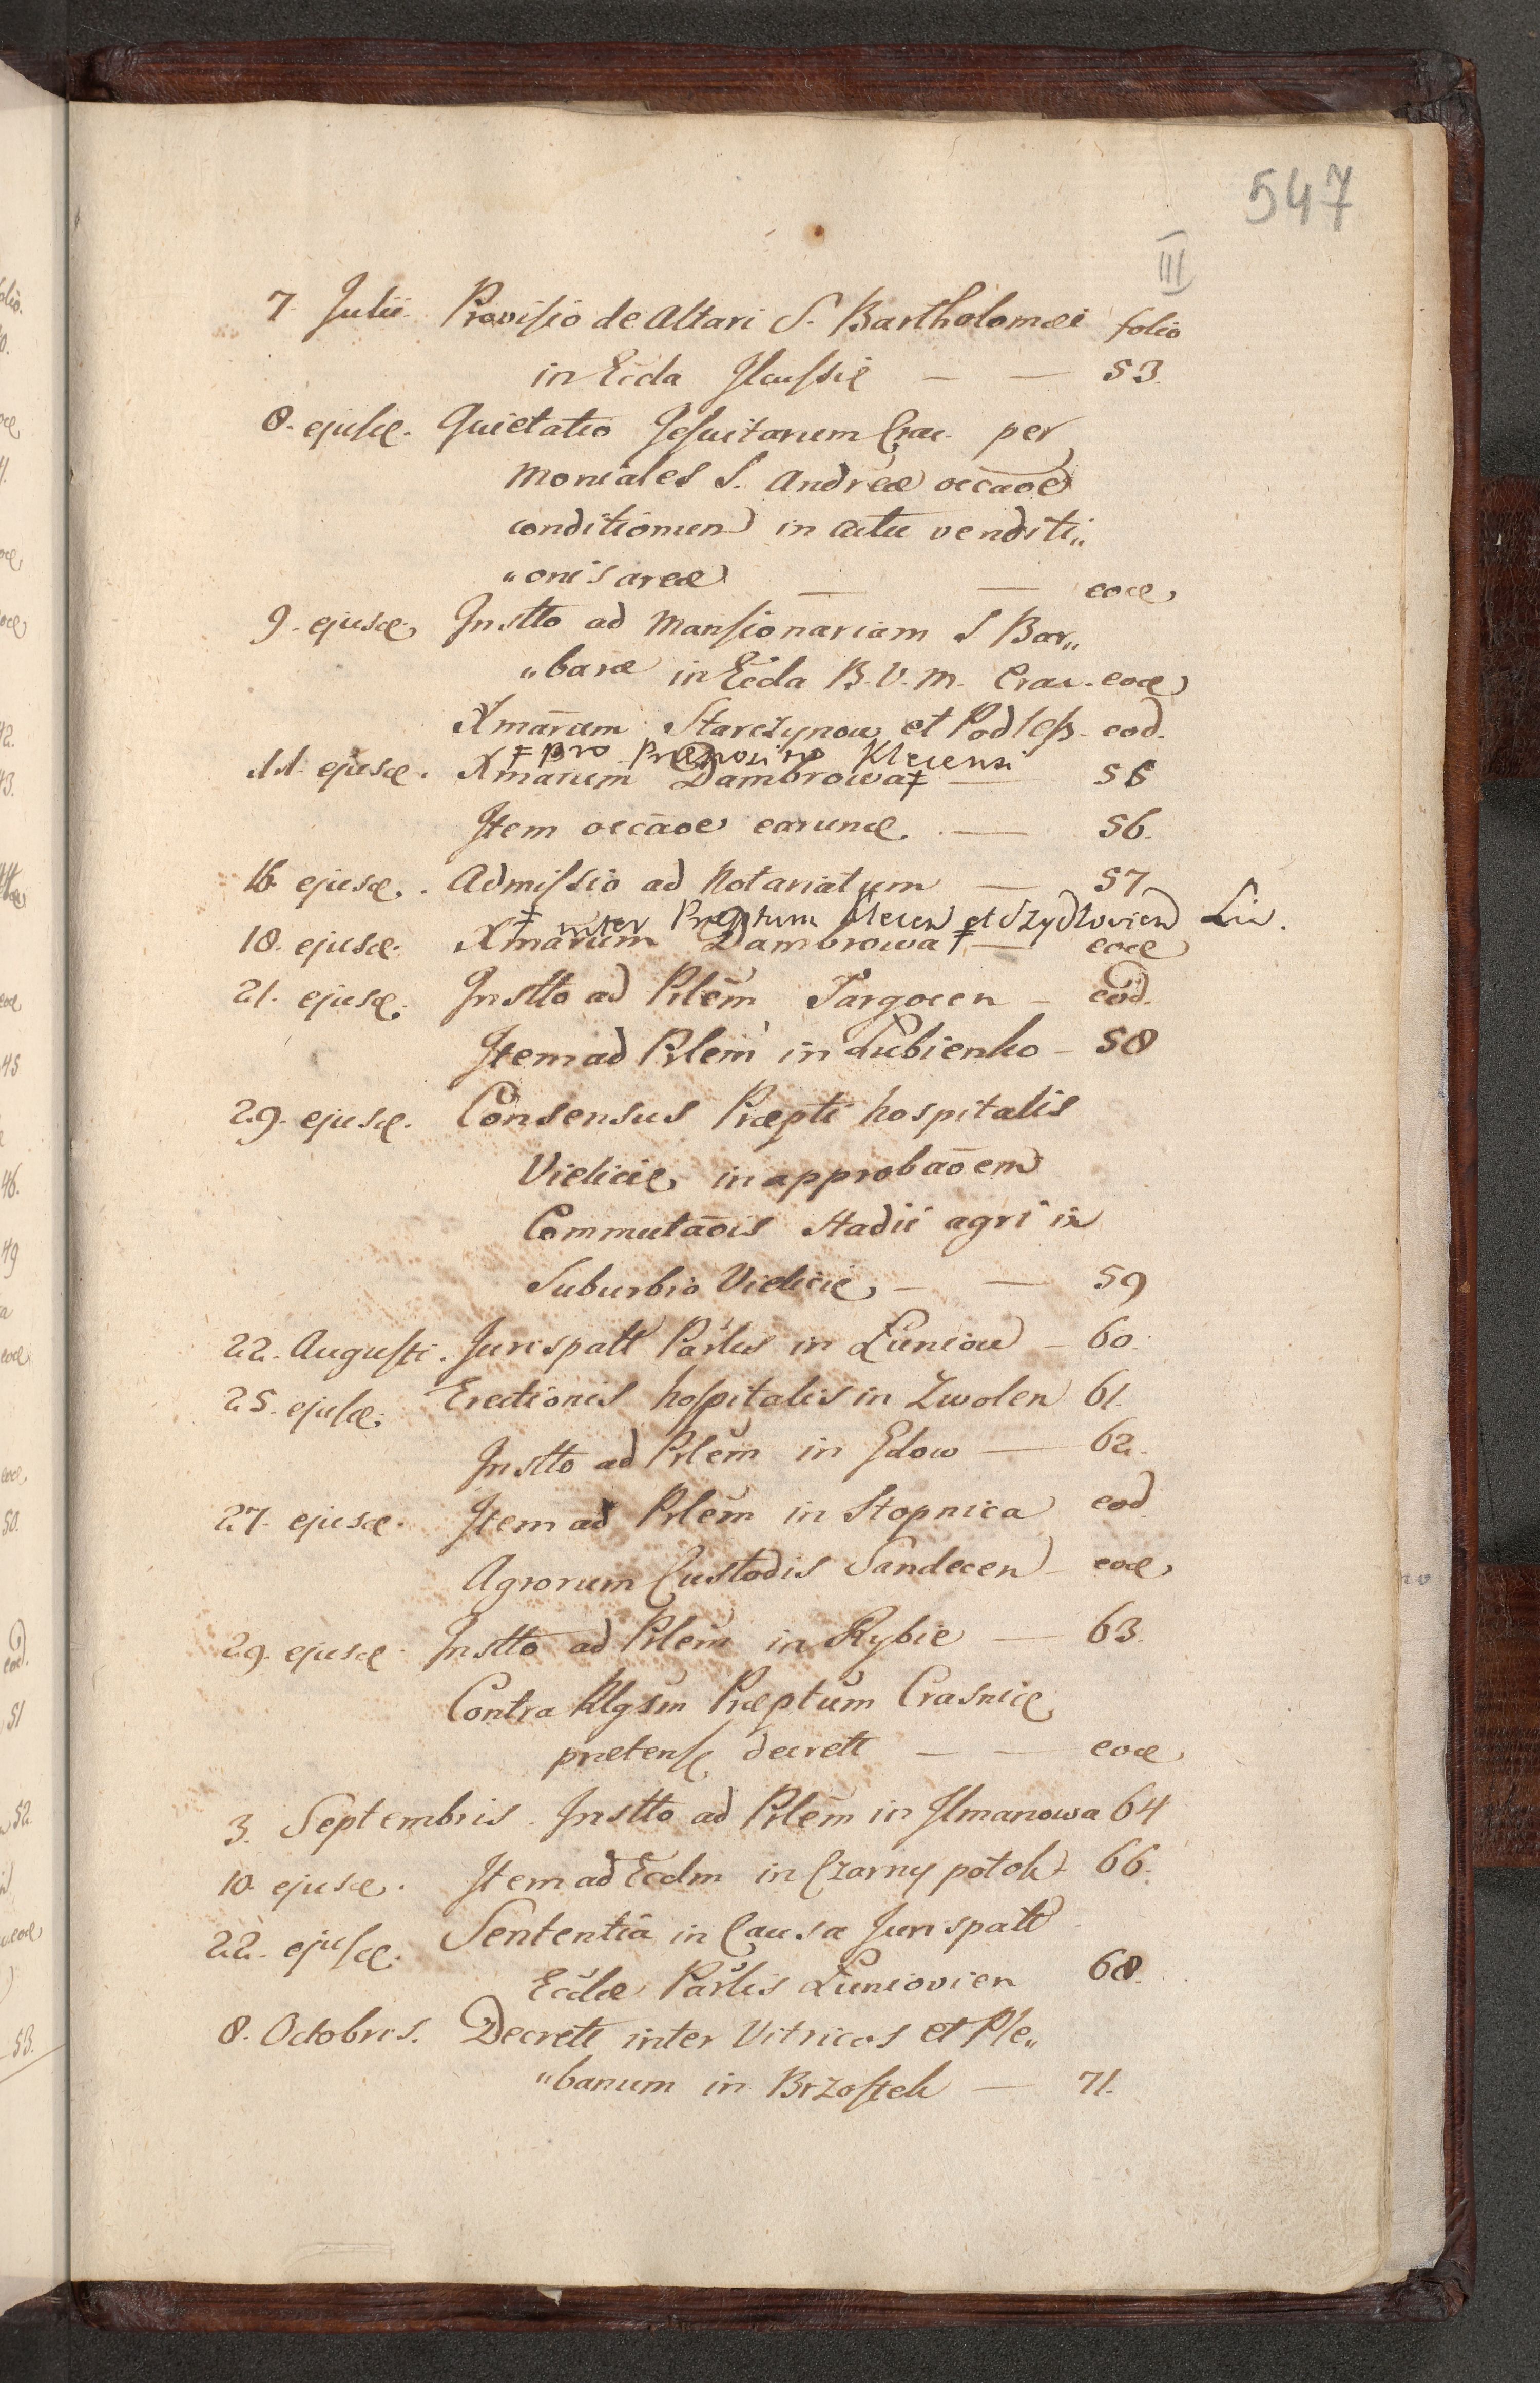 547
III
7 Julii Provisio de Altari S. Bartholomæi folio
in Eccla Ilcussie — — 53.
8. ejusd. Quietatio Jesuitarum Crac. per
Moniales S. Andreæ occãoe
conditionum in actu venditi„
„onis areæ — — eod.
9. ejusd. Instto ad Mansionariam S Bar„
„baræ in Eccla B. V. M. Crac. eod.
Xmarum Starczynow et Podless. eod.
‡ pro Præposito Klecensi
11. ejusd. Xmarum Dambrowa ‡ — 55
Item occãoe earund. — 56.
16. ejusd. Admissio ad Notariatum — 57
‡ inter Præptum Klecen et Szydlovien Lic.
18. ejusd. Xmarum Dambrowa ‡ — eod
21. ejusd. Instto ad Plem Targocen — eod.
Item ad Plem in Lubienko — 58
29. ejusd. Consensus Præpti hospitalis
Vielicie. in approbãoem
Commutãois stadii agri in
Suburbio Vielicie. — — 59
22. Augusti. Jurispatt Parlis in Luniow — 60.
25. ejusd. Erectionis hospitalis in Zwolen 61.
Instto ad Plem in Gdow — 62.
27. ejusd. Item ad Plem in Stopnica eod
Agrorum Custodis Sandecen — eod.
29. ejusd. Instto ad Plem in Rybie — 63.
Contra Rlgsm Præptum Crasnice
prætens. decrett — — eod.
3. Septembris. Instto ad Plem in Ilmanowa 64
10. ejusd. Item ad Ecclm in Czarny potok 66.
22. ejusd. Sententia in Causa Jurispatt
Ecclæ Parlis Luniovien 68.
8. Octobris. Decrett inter Vitricos et Ple„
„banum in Brzostek — 71.